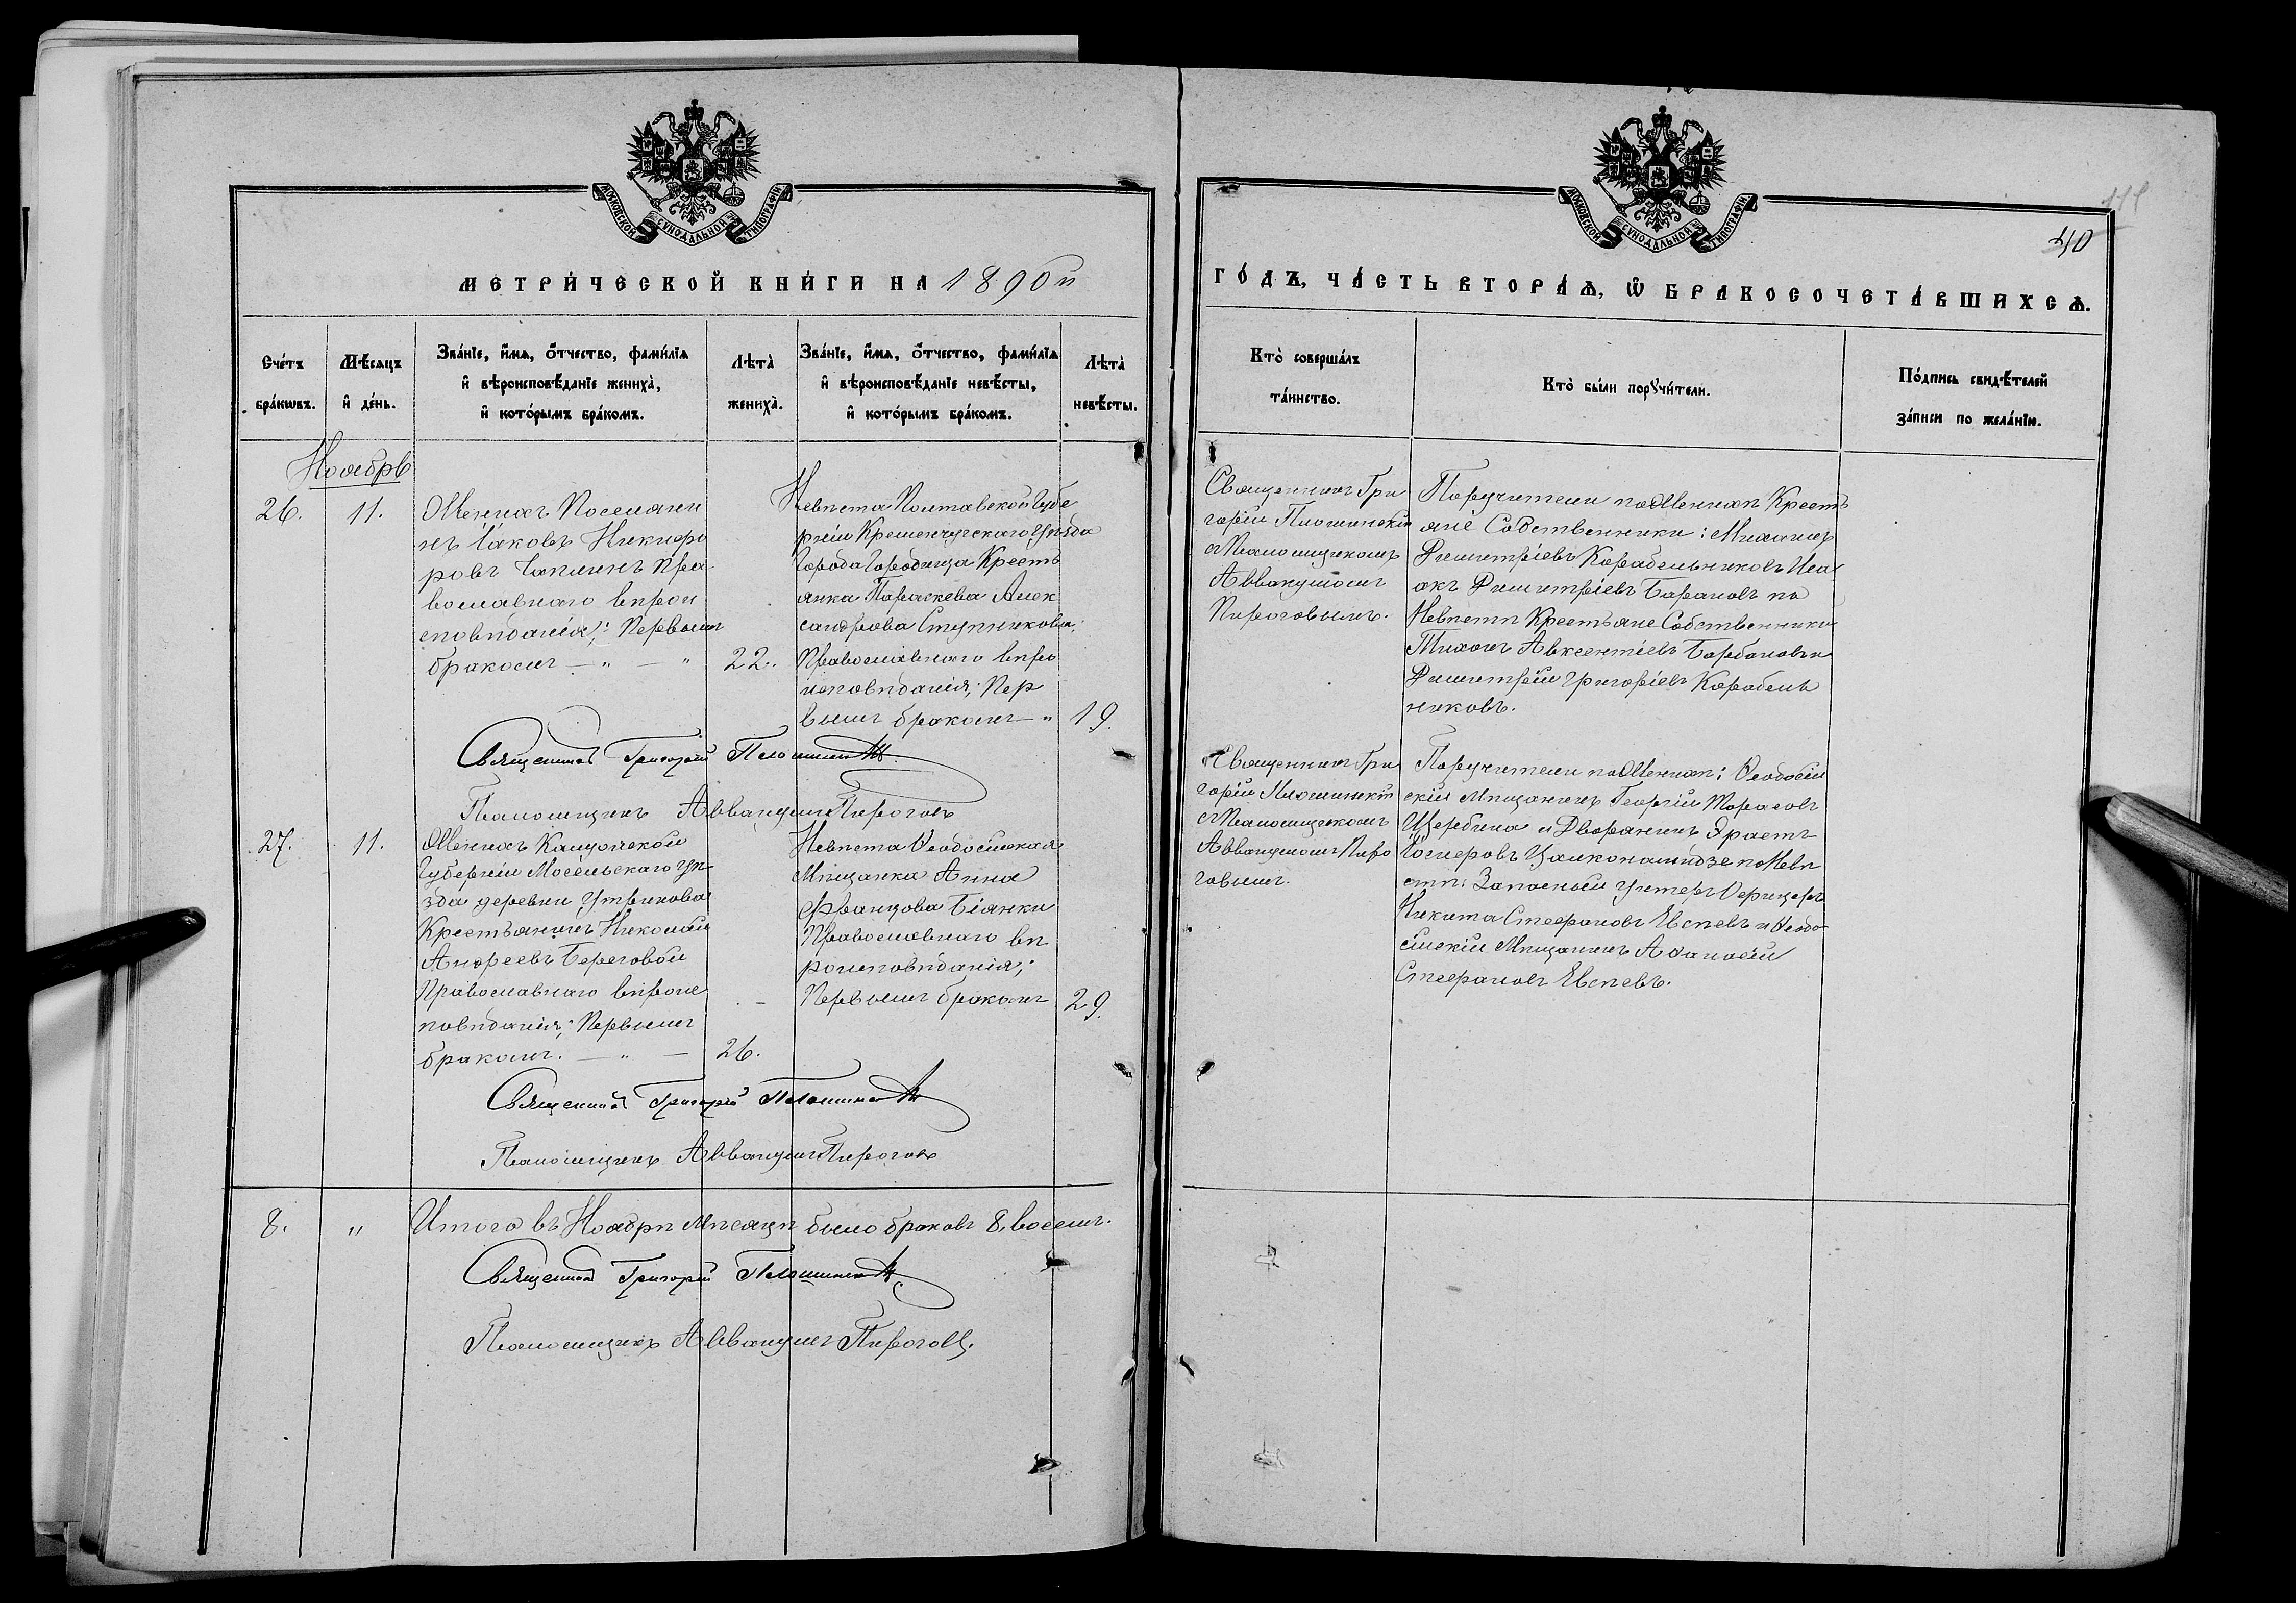 МОСКОВСКОЙ СѴНОДАЛЬНОЙ ТИПОГРАФІИ
МЕТРИ́ЧЕСКОЙ КНИ́ГИ НА 1890й
Сче́тъ бра́кѡвъ.
Мѣ́сяцъ и҆ де́нь.
Зва́нїе, и҆́мя, ѻ҆́тчество, фами́лїя
и҆ вѣроисповѣ́данїе жениха̀,
и҆ кото́рымъ бра́комъ.
Лѣта̀ жениха̀.
Зва́нїе, и҆́мя, ѻ҆́тчество, фами́лїя
и҆ вѣроисповѣ́данїе невѣ́сты,
и҆ кото́рымъ бра́комъ.
Лѣта̀ невѣ́сты.
Ноябрь
26.
11.
Женихъ Поселяни
нъ Іаковъ Никифо
ровъ Чаплинъ Пра
вославнаго вѣрои
сповѣданія; Первымъ
бракомъ — „ — „
22.
Невѣста Полтавской Губе
рніи Кременчугскаго Уѣзда
Города Городища Кресть
янка Параскева Алек
сандрова Ступникова;
Православнаго вѣро
исповѣданія; Пер
вымъ бракомъ — „
19.
Священникъ Григорій Плошинскій
Псаломщикъ Аввакумъ Пироговъ
27.
11.
Женихъ Калужской
Губерніи Мосальскаго Уѣ
зда деревни Утрикова
Крестьянинъ Николай
Андреевъ Береговой
Православнаго вѣроис
повѣданія; Первымъ
бракомъ. — „ —
26.
Невѣста Ѳеодосійская
Мѣщанка Анна
Францова Біянки
Православнаго вѣ
роисповѣданія;
Первымъ бракомъ
29.
Священникъ Григорій Плошинскій
Псаломщикъ Аввакумъ Пироговъ
8.
„
Итого въ Ноябрѣ Мѣсяцѣ было браковъ 8, восемь.
Священникъ Григорій Плошинскій
Псаломщикъ Аввакумъ Пироговъ.
МОСКОВСКОЙ СѴНОДАЛЬНОЙ ТИПОГРАФІИ
40
ГО́ДЪ, ЧА́СТЬ ВТОРА́Я, Ѽ БРАКОСОЧЕТА́ВШИХСЯ.
Кто̀ соверша́лъ
та́инство.
Кто̀ бы́ли порꙋчи́тели.
По́дпись свидѣ́телей
за́писи по жела́нїю.
Священникъ Гри
горій Плошинскій
съ Псаломщикомъ
Аввакумомъ
Пироговымъ.
Поручители по Женихѣ Кресть
яне Собственники: Михаилъ
Димитріевъ Корабельниковъ Иса
акъ Димитріевъ Барановъ по
Невѣстѣ Крестьяне Собственники
Тихонъ Авксентіевъ Барбановъ и
Димитрій Григоріевъ Корабель
никовъ.
Священникъ Гри
горій Плошинскій
съ Псаломщикомъ
Аввакумомъ Пиро
говымъ.
Поручители по Женихѣ: Ѳеодосій
скій Мѣщанинъ Георгій Тарасовъ
Щербина и Дворянинъ Эрастъ
по Невѣ
стѣ: Запасный Унтеръ Офицеръ
Никита Стефановъ Евсѣевъ и Ѳеодо
сійскій Мѣщанинъ Аѳанасій
Стефановъ Евсѣевъ.